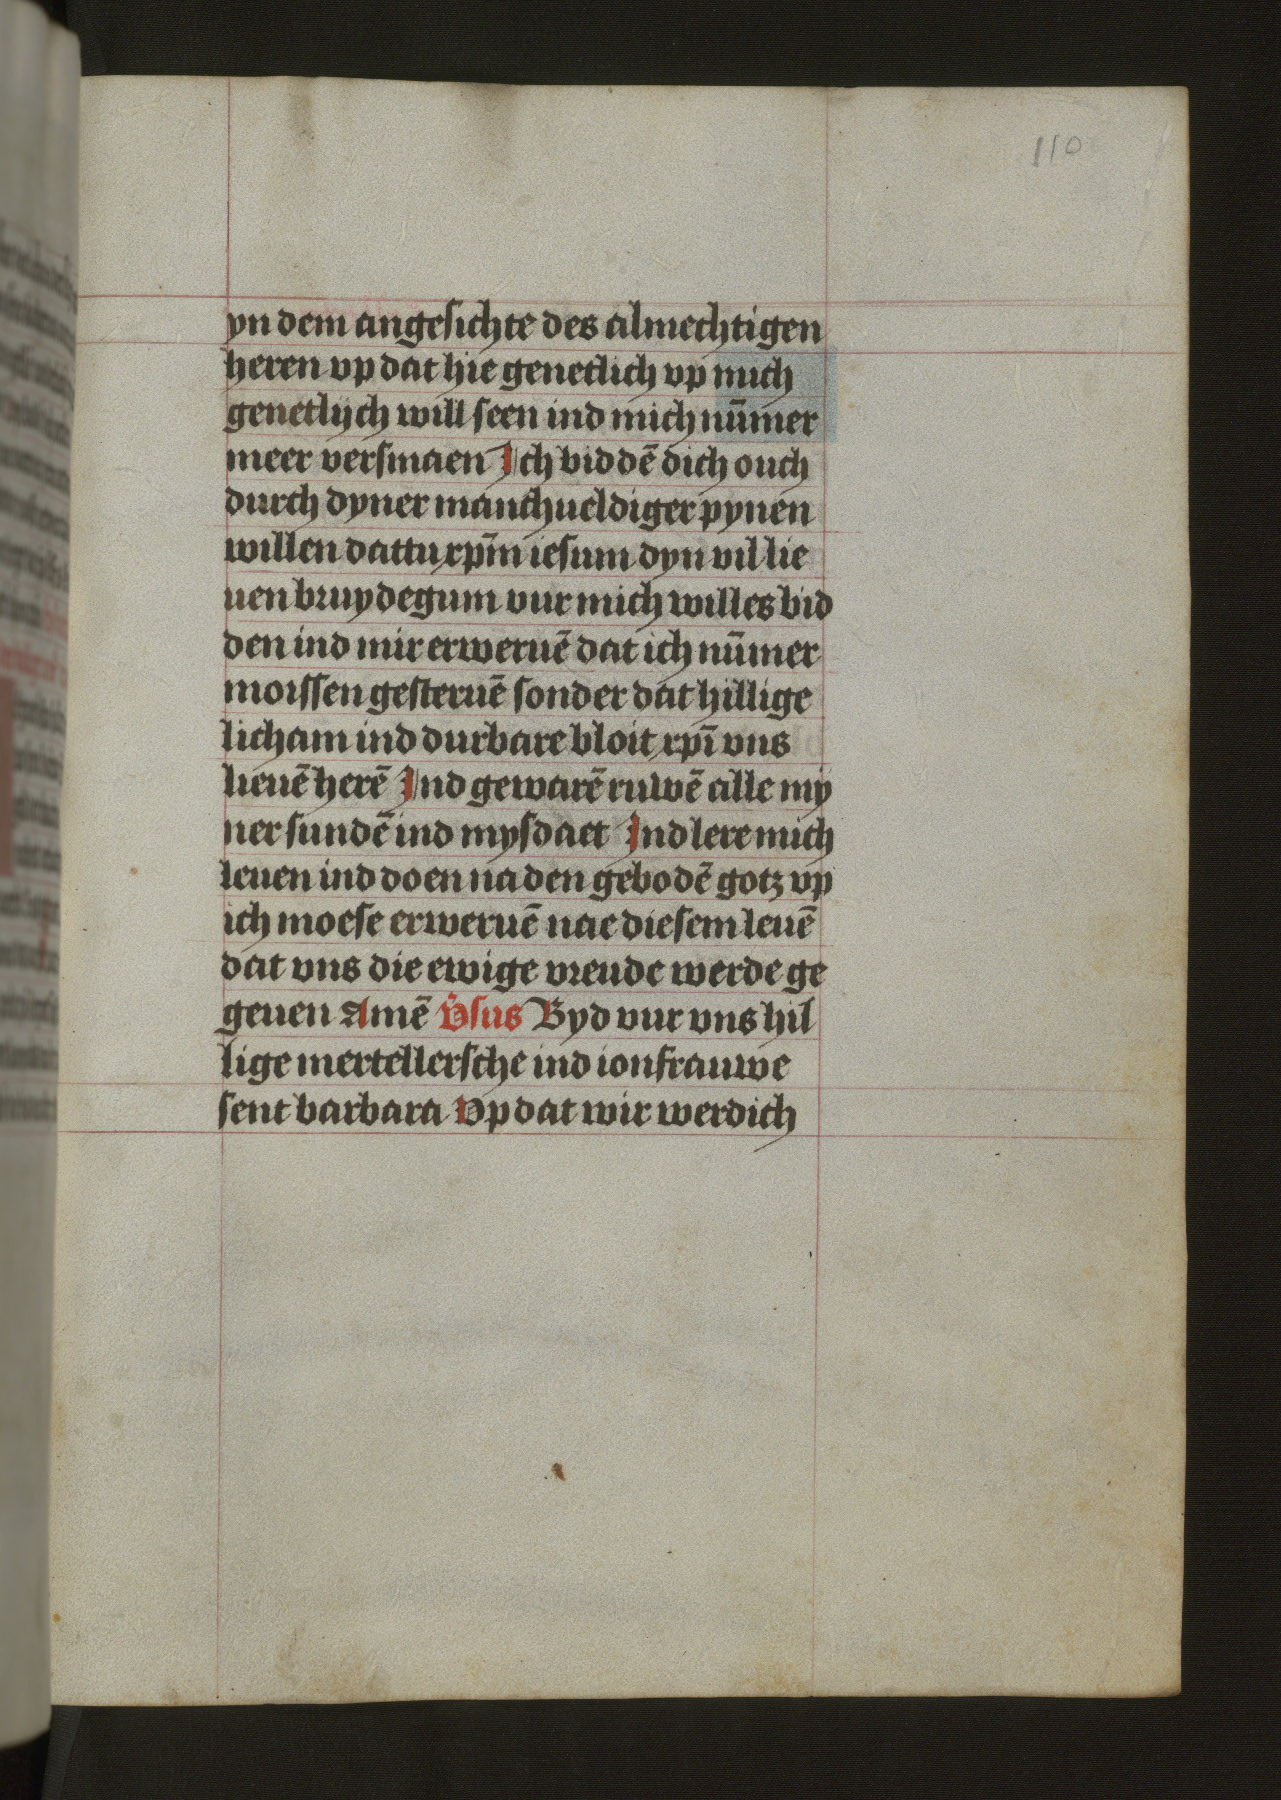 110
yn dem angesichte des almechtigen
heren vp dat hie genetlich vp mich
genetlijch will seen ind mich nūmer
meer versmaen Ich biddē dich ouch
durch dyner manchueldiger pynen
willen dattu xp̄m iesum dyn vil lie
uen bruydegum vur mich willes bid
den ind mir erweruē dat ich nūmer
moissen gesteruē sonder dat hillige
licham ind durbare bloit xpī vns
lieuē herē Ind gewarē ruwē alle my
ner sundē ind mysdaet Ind lere mich
leuen ind doen na den gebodē gotz vp
ich moese erweruē nae diesem leuē
dat vns die ewige vreude werde ge
geuen Amē V̄sus Byd vur vns hil
lige mertellersche ind ionfrauwe
sent barbara Vp dat wir werdich